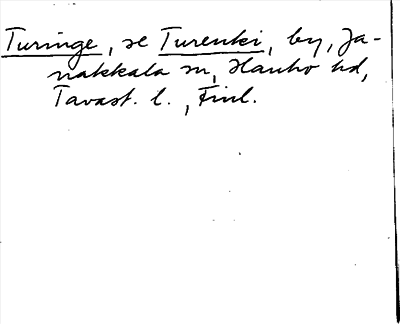 Turinge, se Turenki, by, Ja-
nakkala sn, Hauho hd,
Tavast. l., Finl.